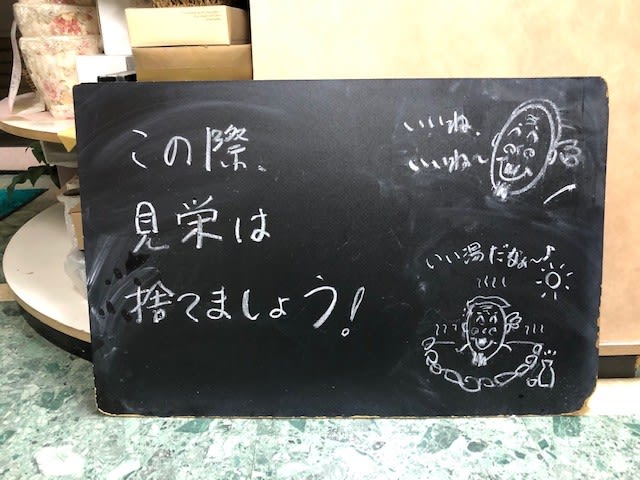 この際、
見栄は
捨てましょう!
いいね、
いいね〜
いい湯だなぁ〜♪